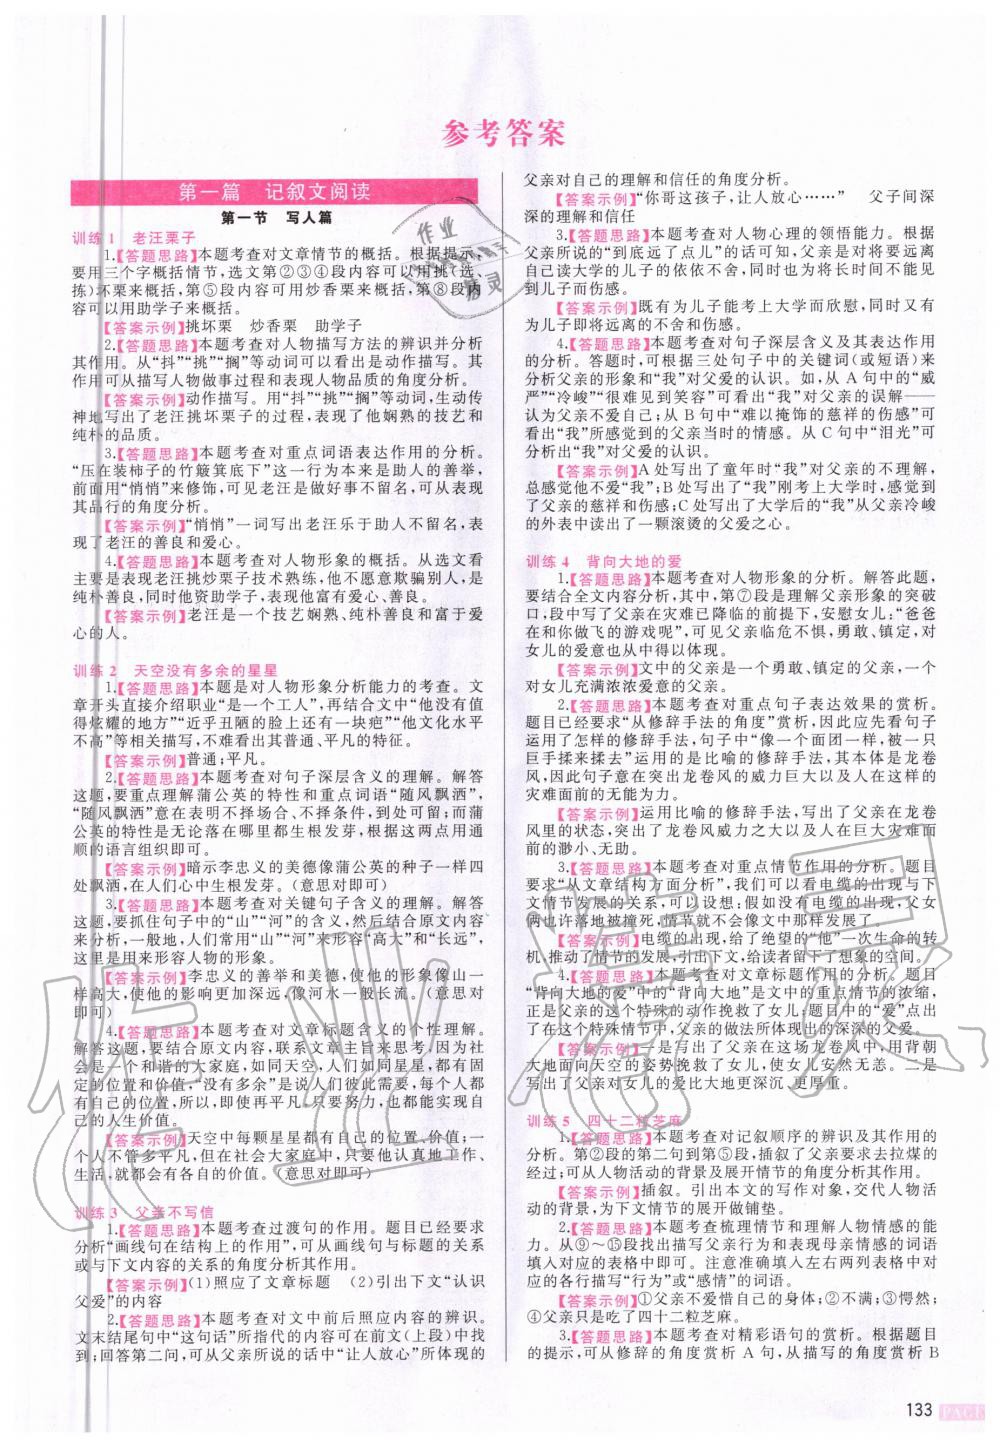 参考答案
第一篇 记叙文阅读
第一节 写人篇
训练1 老汪栗子
1.【答题思路】本题考查对文章情节的概括。根据提示,
要用三个字概括情节,选文第②③④段内容可以用挑(选、
拣)坏栗来概括,第⑤段内容可用炒香栗来概括,第⑧段内
容可以用助学子来概括。
【答案示例】挑坏栗 炒香栗 助学子
2.【答题思路】本题考查对人物描写方法的辨识并分析
其作用。从“抖”“挑”“搁”等动词可以看出是动作描写。其
作用可从描写人物做事过程和表现人物品质的角度分析。
【答案示例】动作描写。用“抖”“挑”“搁”等动词,生动传
神地写出了老汪挑坏栗子的过程,表现了他娴熟的技艺和
纯朴的品质。
3.【答题思路】本题考查对重点词语表达作用的分析。
“压在装柿子的竹簸箕底下”这一行为本来是助人的善举,
前面用“悄悄”来修饰,可见老汪是做好事不留名,表现了
其品行的角度分析。
【答案示例】“悄悄”一词写出老汪乐于助人不留名,表
现了老汪的善良和爱心。
4.【答题思路】本题考查对人物形象的概括。从选文看
主要是表现老汪挑炒栗子技术熟练,他不愿意欺骗别人,是
纯朴善良,同时他资助学子,表现他富有爱心、善良。
【答案示例】老汪是一个技艺娴熟、纯朴善良和富于爱
心的人。
训练2 天空没有多余的星星
1.【答题思路】本题是对人物形象分析能力的考查。文
章开头直接介绍职业“是一个工人”,再结合文中“他没有值
得炫耀的地方”“近乎丑陋的脸上还有一块疤”“他文化水平
不高”等相关描写,不难看出其普通、平凡的特征。
【答案示例】普通;平凡。
2.【答题思路】本题考查对句子深层含义的理解。解答
这题,要重点理解蒲公英的特性和重点词语“随风飘洒”,
“随风飘洒”意在表明不择场合、不择条件,到处可留;而蒲
公英的特性是无论落在哪里都生根发芽,根据这两点用通
顺的语言组织即可。
【答案示例】暗示李忠义的美德像蒲公英的种子一样四
处飘洒,在人们心中生根发芽。(意思对即可)
3.【答题思路】本题考查对关键句子含义的理解。解答
这题,要抓住句子中的“山”“河”的含义,然后结合原文内容
来分析,一般地,人们常用“山”“河”来形容“高大”和“长远”,
这里是用来形容人物的形象。
【答案示例】李忠义的善举和美德,使他的形象像山一
样高大,使他的影响更加深远,像河水一般长流。(意思对
即可)
4.【答题思路】本题考查对文章标题含义的个性理解。
解答这题,要结合原文内容,联系文章主旨来思考,因为社
会是一个和谐的大家庭,如同天空,个体如同星星,都有固
定的位置和价值,“没有多余”是说人们彼此相处,都有自
己的位置和价值,所以,即使再平凡,只要努力,也能创造自
己的人生价值。
【答案示例】天空中每颗星星都有自己的位置、价值;一
个人不管多平凡,但在社会大家庭中,只要他认真地工作、
生活,就都会有各自的价值。(意思对即可)
训练3 父亲不写信
1.【答题思路】本题考查过渡句的作用。题目已经要求
分析“画线句在结构上的作用”,可从画线句与标题的关系
或与下文内容的关系的角度分析其作用。
【答案示例】(1)照应了文章标题 (2)引出下文“认识
父爱”的内容
2.【答题思路】本题考查对文中前后照应内容的辨识。
文末结尾句中“这句话”所指代的内容可在前文(上段)中找
到;回答第二问,可从父亲所说的话中“让人放心”所体现的
父亲对自己的理解和信任的角度分析。
【答案示例】“你哥这孩子,让人放心……” 父子间深
深的理解和信任
3.【答题思路】本题考查对人物心理的领悟能力。根据
父亲所说的“到底远了点儿”的话可知,父亲是对将要远离
自己读大学的儿子的依依不舍,同时也为将长时间不能见
到儿子而伤感。
【答案示例】既有为儿子能考上大学而欣慰,同时又有
为儿子即将远离的不舍和伤感。
4.【答题思路】本题考查对句子深层含义及其表达作用
的分析。答题时,可根据三处句子中的关键词(或短语)来
分析父亲的形象和“我”对父爱的认识。如,从A句中的“威
严”“冷峻”“很难见到笑容”可看出“我”对父亲的误解——
认为父亲不爱自己;从B句中“难以掩饰的慈祥的伤感”可
看出“我”所感觉到的父亲当时的情感。从C句中“泪光”可
分析出“我”对父爱的认识。
【答案示例】A处写出了童年时“我”对父亲的不理解,
总感觉他不爱“我”;B处写出了“我”刚考上大学时,感觉到
了父亲的慈祥和伤感;C处写出了大学后的“我”从父亲冷峻
的外表中读出了一颗滚烫的父爱之心。
训练4 背向大地的爱
1.【答题思路】本题考查对人物形象的分析。解答此题,
要结合全文内容分析,其中,第⑦段是理解父亲形象的突破
口,段中写了父亲在灾难已降临的前提下,安慰女儿:“爸爸
在和你做飞的游戏呢”,可见父亲临危不惧,勇敢、镇定,对
女儿的爱意也从中得以体现。
【答案示例】文中的父亲是一个勇敢、镇定的父亲,一个
对女儿充满浓浓爱意的父亲。
2.【答题思路】本题考查对重点句子表达效果的赏析。
题目已经要求“从修辞手法的角度”赏析,因此应先看句子
运用了怎样的修辞手法,句子中“像一个面团一样,被一只
巨手揉来揉去”运用的是比喻的修辞手法,其本体是龙卷
风,因此句子意在突出龙卷风的威力巨大以及人在巨大的
灾难面前的无能为力。
【答案示例】运用比喻的修辞手法,写出了父亲在龙卷
风里的状态,突出了龙卷风威力之大以及人在巨大灾难面
前的渺小、无助。
3.【答题思路】本题考查对重点情节作用的分析。题目
要求“从文章结构方面分析”,就要看电缆的出现与下
文情节发展的关系,可以设想;假如没有电缆的出现,父女
俩也许落地被撞死,情节就不会像文中那样发展了。
【答案示例】电缆的出现,给了绝望的“他”一次生命的转
机,推动了情节的发展,引出下文,给读者留下了想象的空间。
4.【答题思路】本题考查对文章标题作用的分析。题目
“背向大地的爱”中的“背向大地”是文中的重点情节的浓缩,
正是父亲的这个特殊的动作挽救了女儿;题目中的“爱”点出
了在这个特殊情节中,父亲的做法所体现出的深深的父爱。
【答案示例】一是写出了父亲在这场龙卷风中,用背朝
大地面向天空的姿势挽救了女儿,使女儿安然无恙。二是
写出了父亲对女儿的爱比大地更深沉、更厚重。
训练5 四十二粒芝麻
1.【答题思路】本题考查对记叙顺序的辨识及其作用的
分析。第②段的第二句到第⑤段,插叙了父亲要求去拉煤的
经过;可从人物活动的背景及展开情节的角度分析其作用。
【答案示例】插叙。引出本文的写作对象,交代人物活
动的背景,为下文情节的展开做铺垫。
2.【答题思路】本题考查梳理情节和理解人物情感的能
力。从⑨～⑮段找出描写父亲行为和表现母亲情感的词语
填入对应的表格中即可。注意准确填入左右两列表格中对
应的各行描写“行为”或“感情”的词语。
【答案示例】①父亲不爱惜自己的身体;②不满;③愕然;
④父亲只是吃了四十二粒芝麻。
3.【答题思路】本题考查对精彩语句的赏析。根据题目
的提示,可从修辞的角度赏析A句,从描写的角度赏析B
133
PAGE